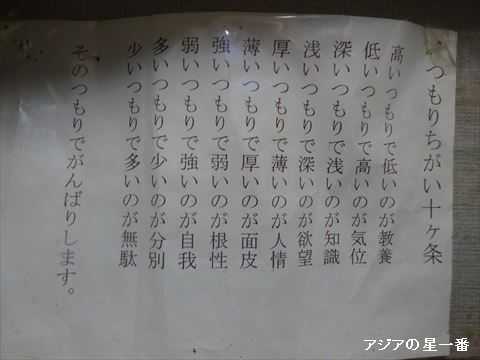 つもりちがい十ヶ条
高いつもりで低いのが教養
低いつもりで高いのが気位
深いつもりで浅いのが知識
浅いつもりで深いのが欲望
厚いつもりで薄いのが人情
薄いつもりで厚いのが面皮
強いつもりで弱いのが根性
弱いつもりで強いのが自我
多いつもりで少いのが分別
少いつもりで多いのが無駄
そのつもりでがんばりします。
アジアの星一番